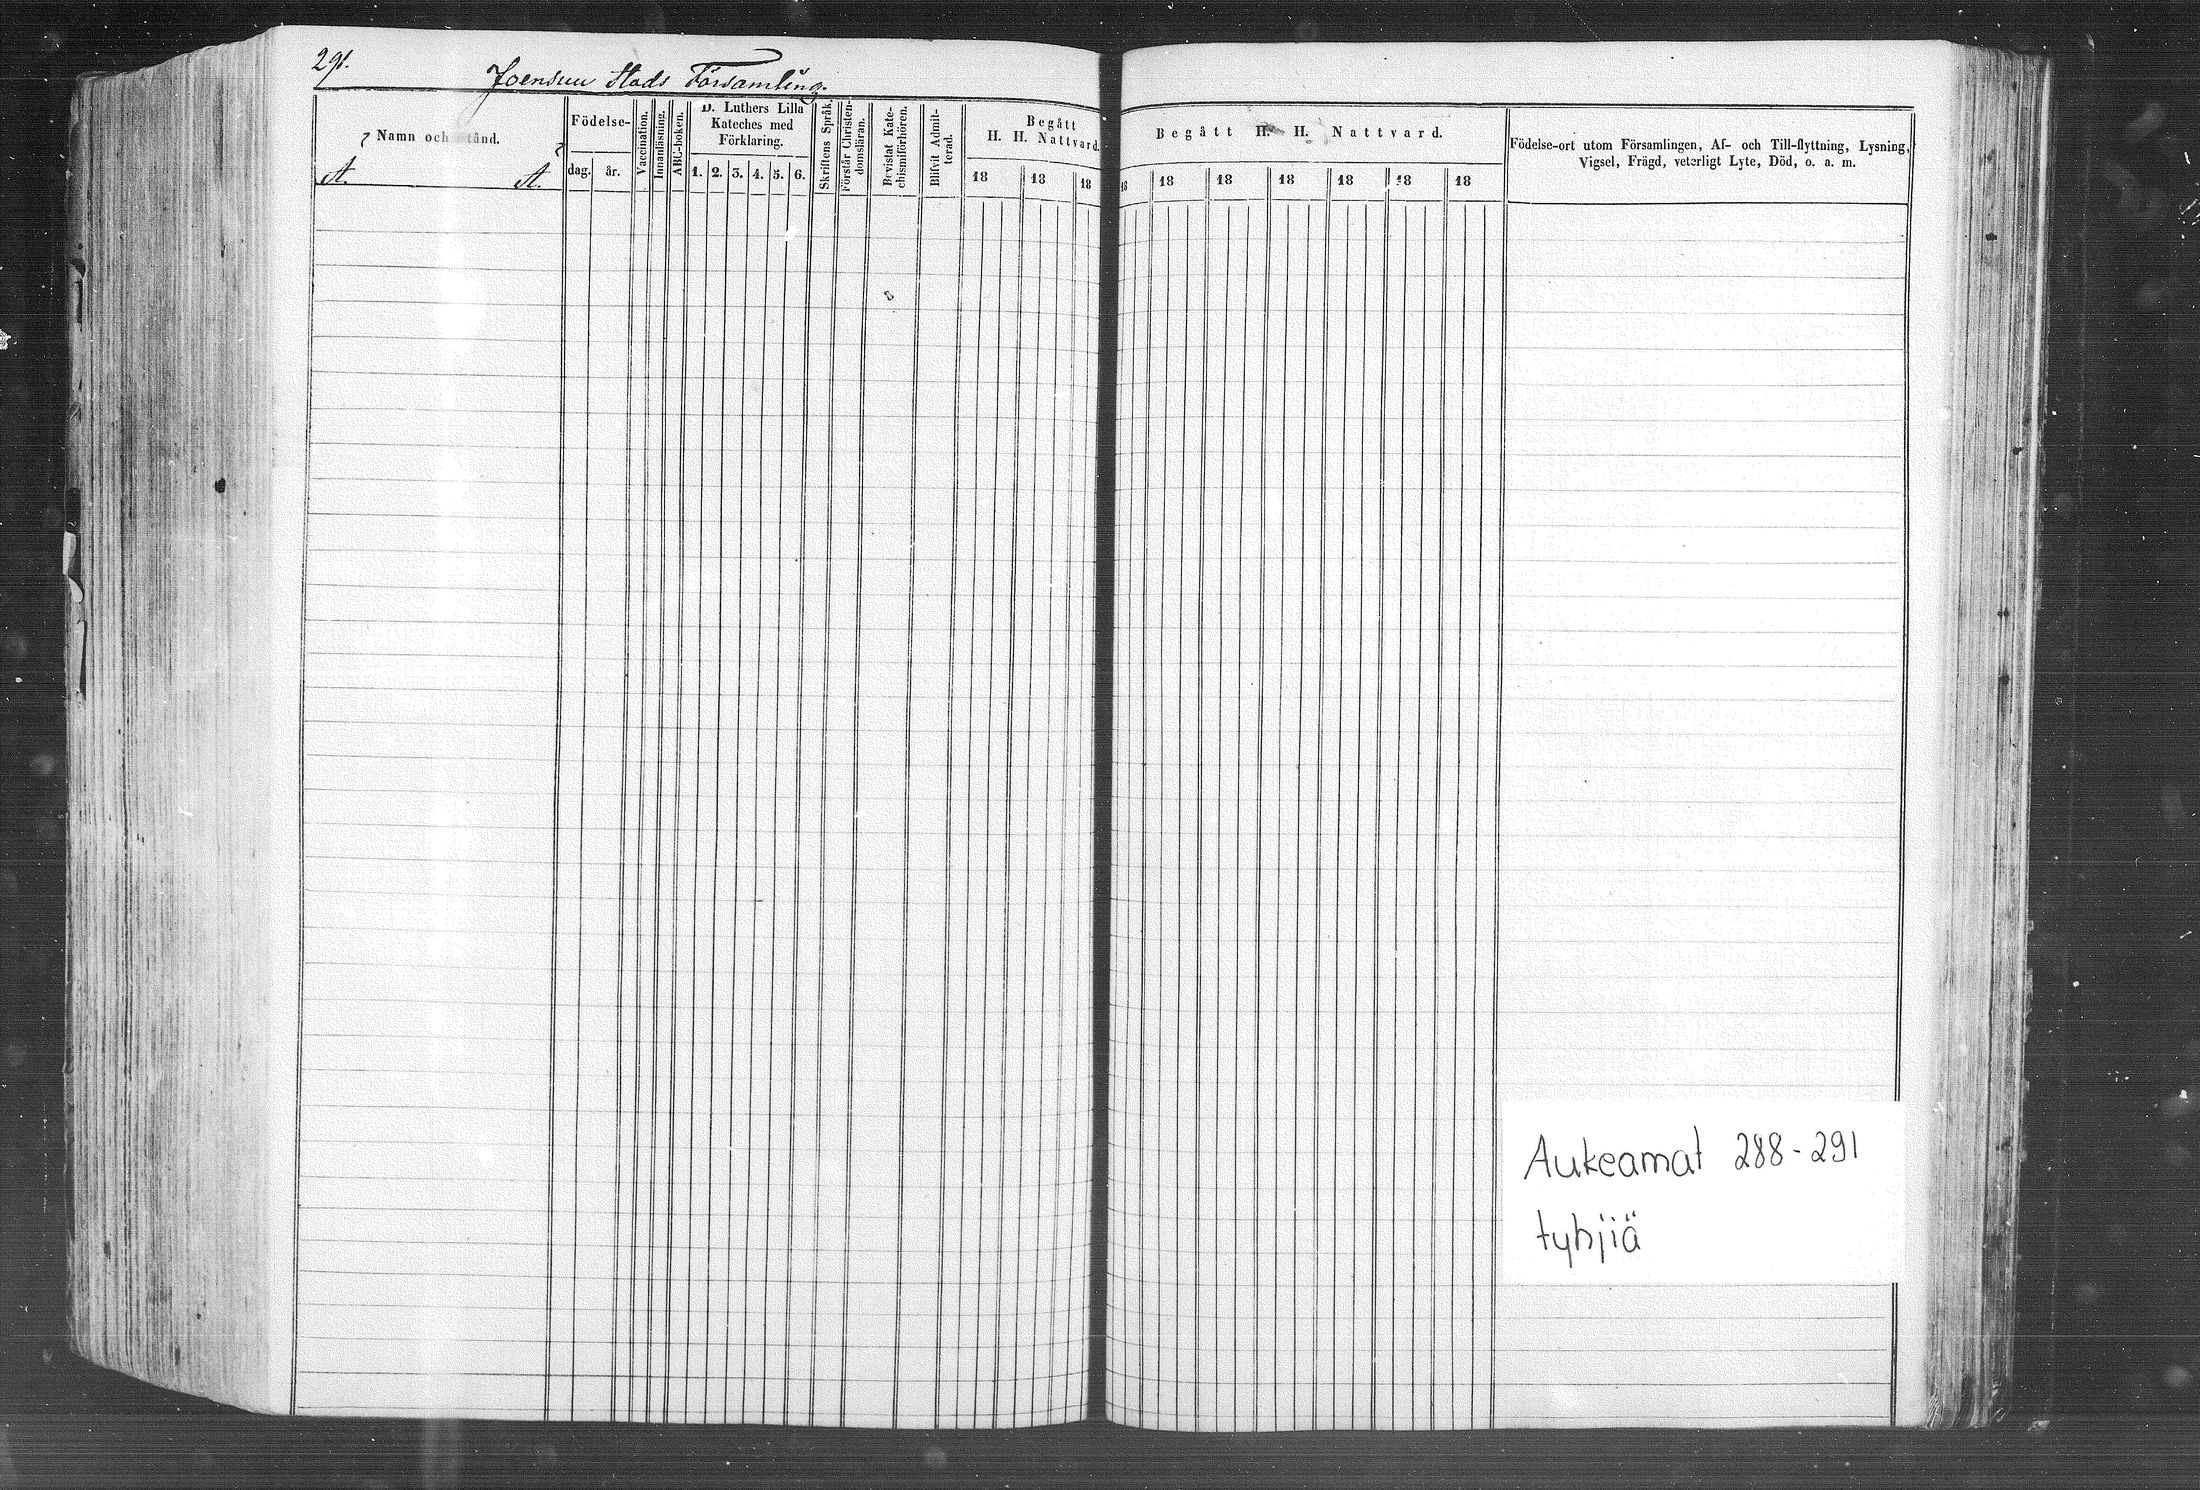 291.
Joensuu Stads Församling.
Namn och stånd.
A. A.
Födelse-
dag. år.
Vaccination.
Innanläsning.
ABC-boken.
D. Luthers Lilla
Kateches med
Förklaring.
1. 2. 3. 4. 5. 6.
Skriftens Språk.
Förstår Christen-
domsläran.
Bevistat Kate-
chismiförhören.
Blifvit Admit-
terad.
Begått
H. H. Nattvard.
18 18 18
Begått H. H. Nattvard.
18 18 18 18 18 18 18
Födelse-ort utom Församlingen, Af- och Till-flyttning, Lysning,
Vigsel, Frägd, veterligt Lyte, Död, o. a. m.
Aukeamat 288-291
tyhjiä